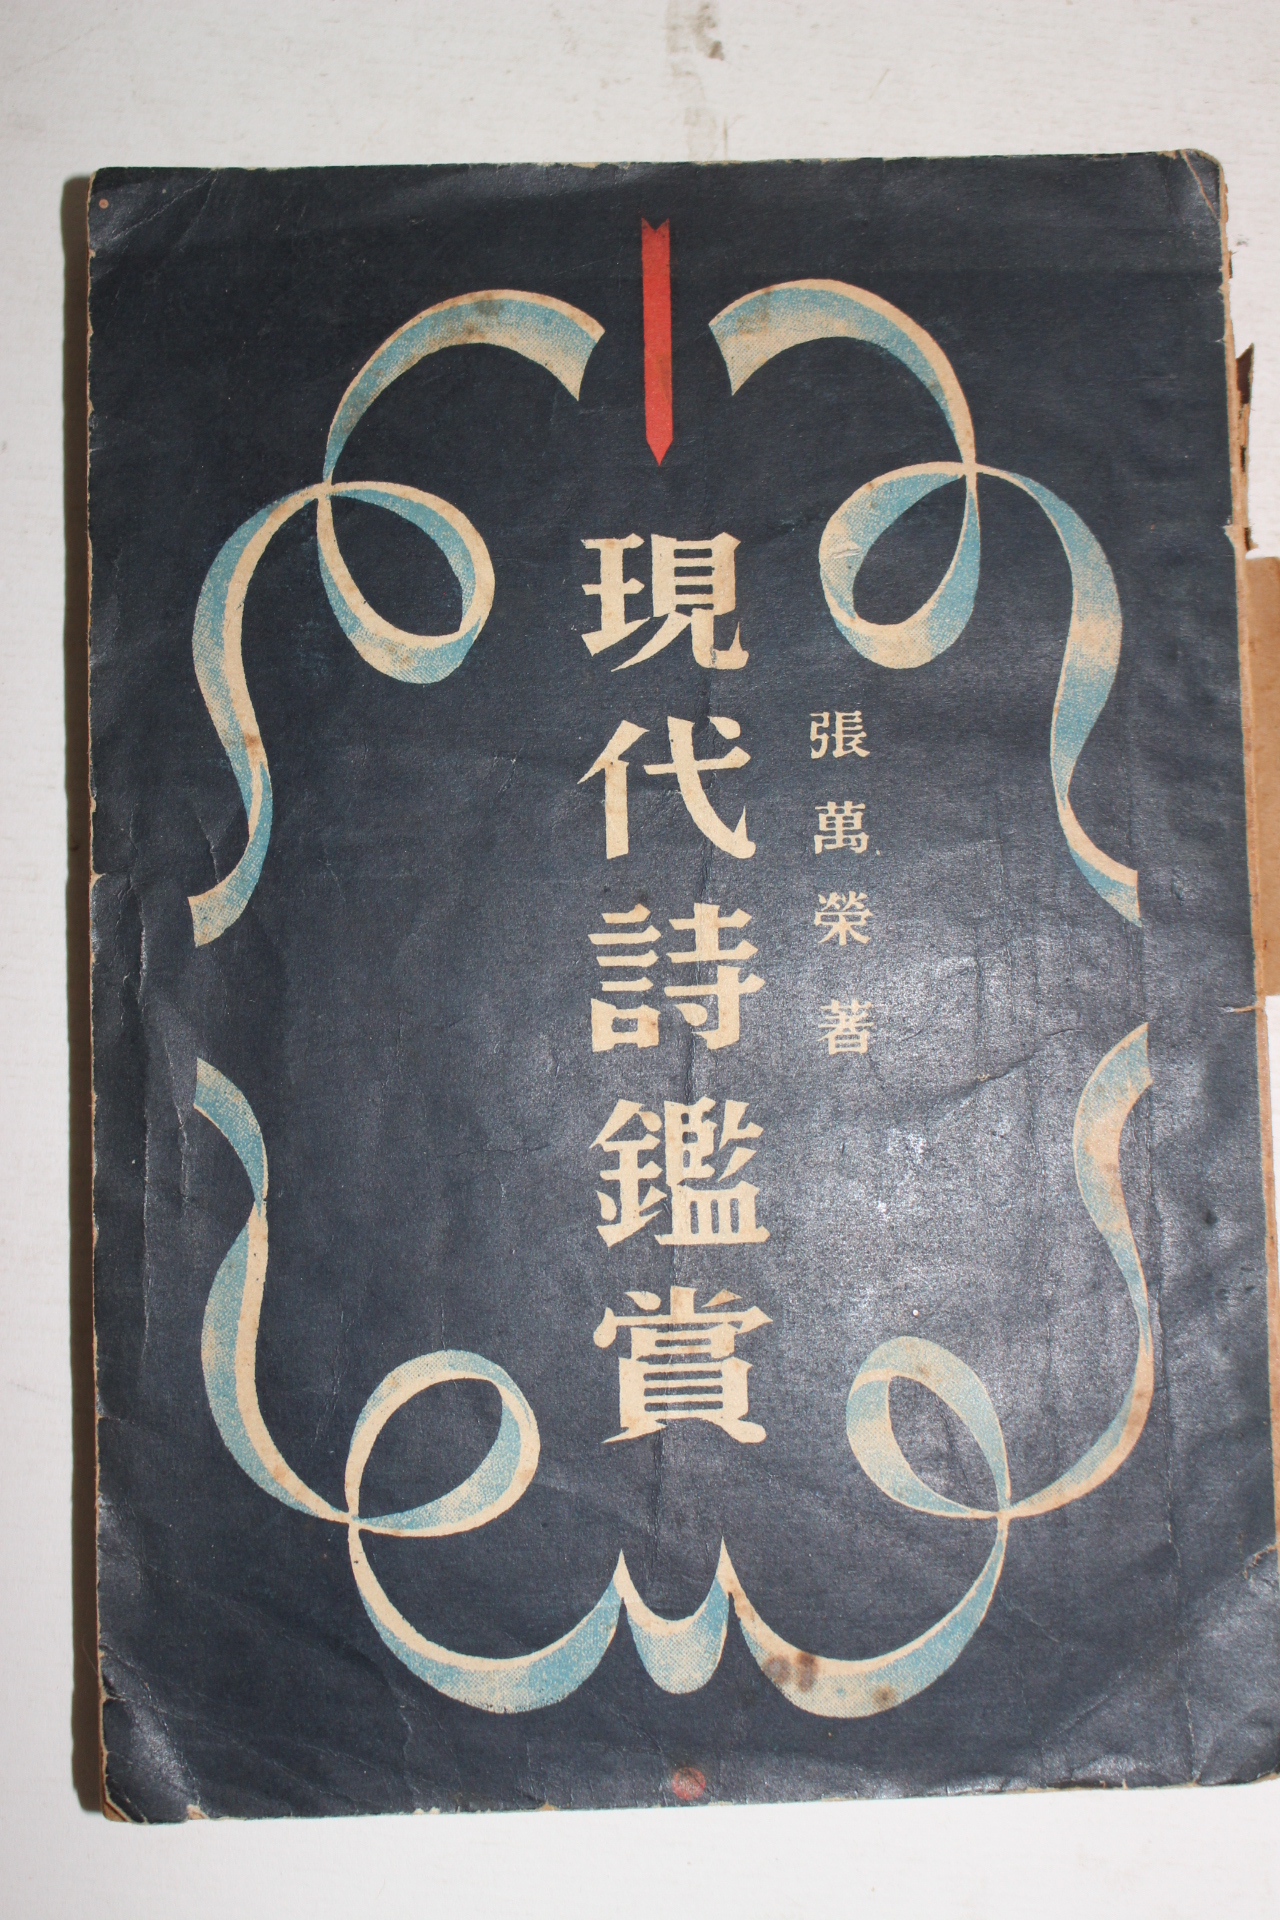 張萬榮著
現代詩鑑賞